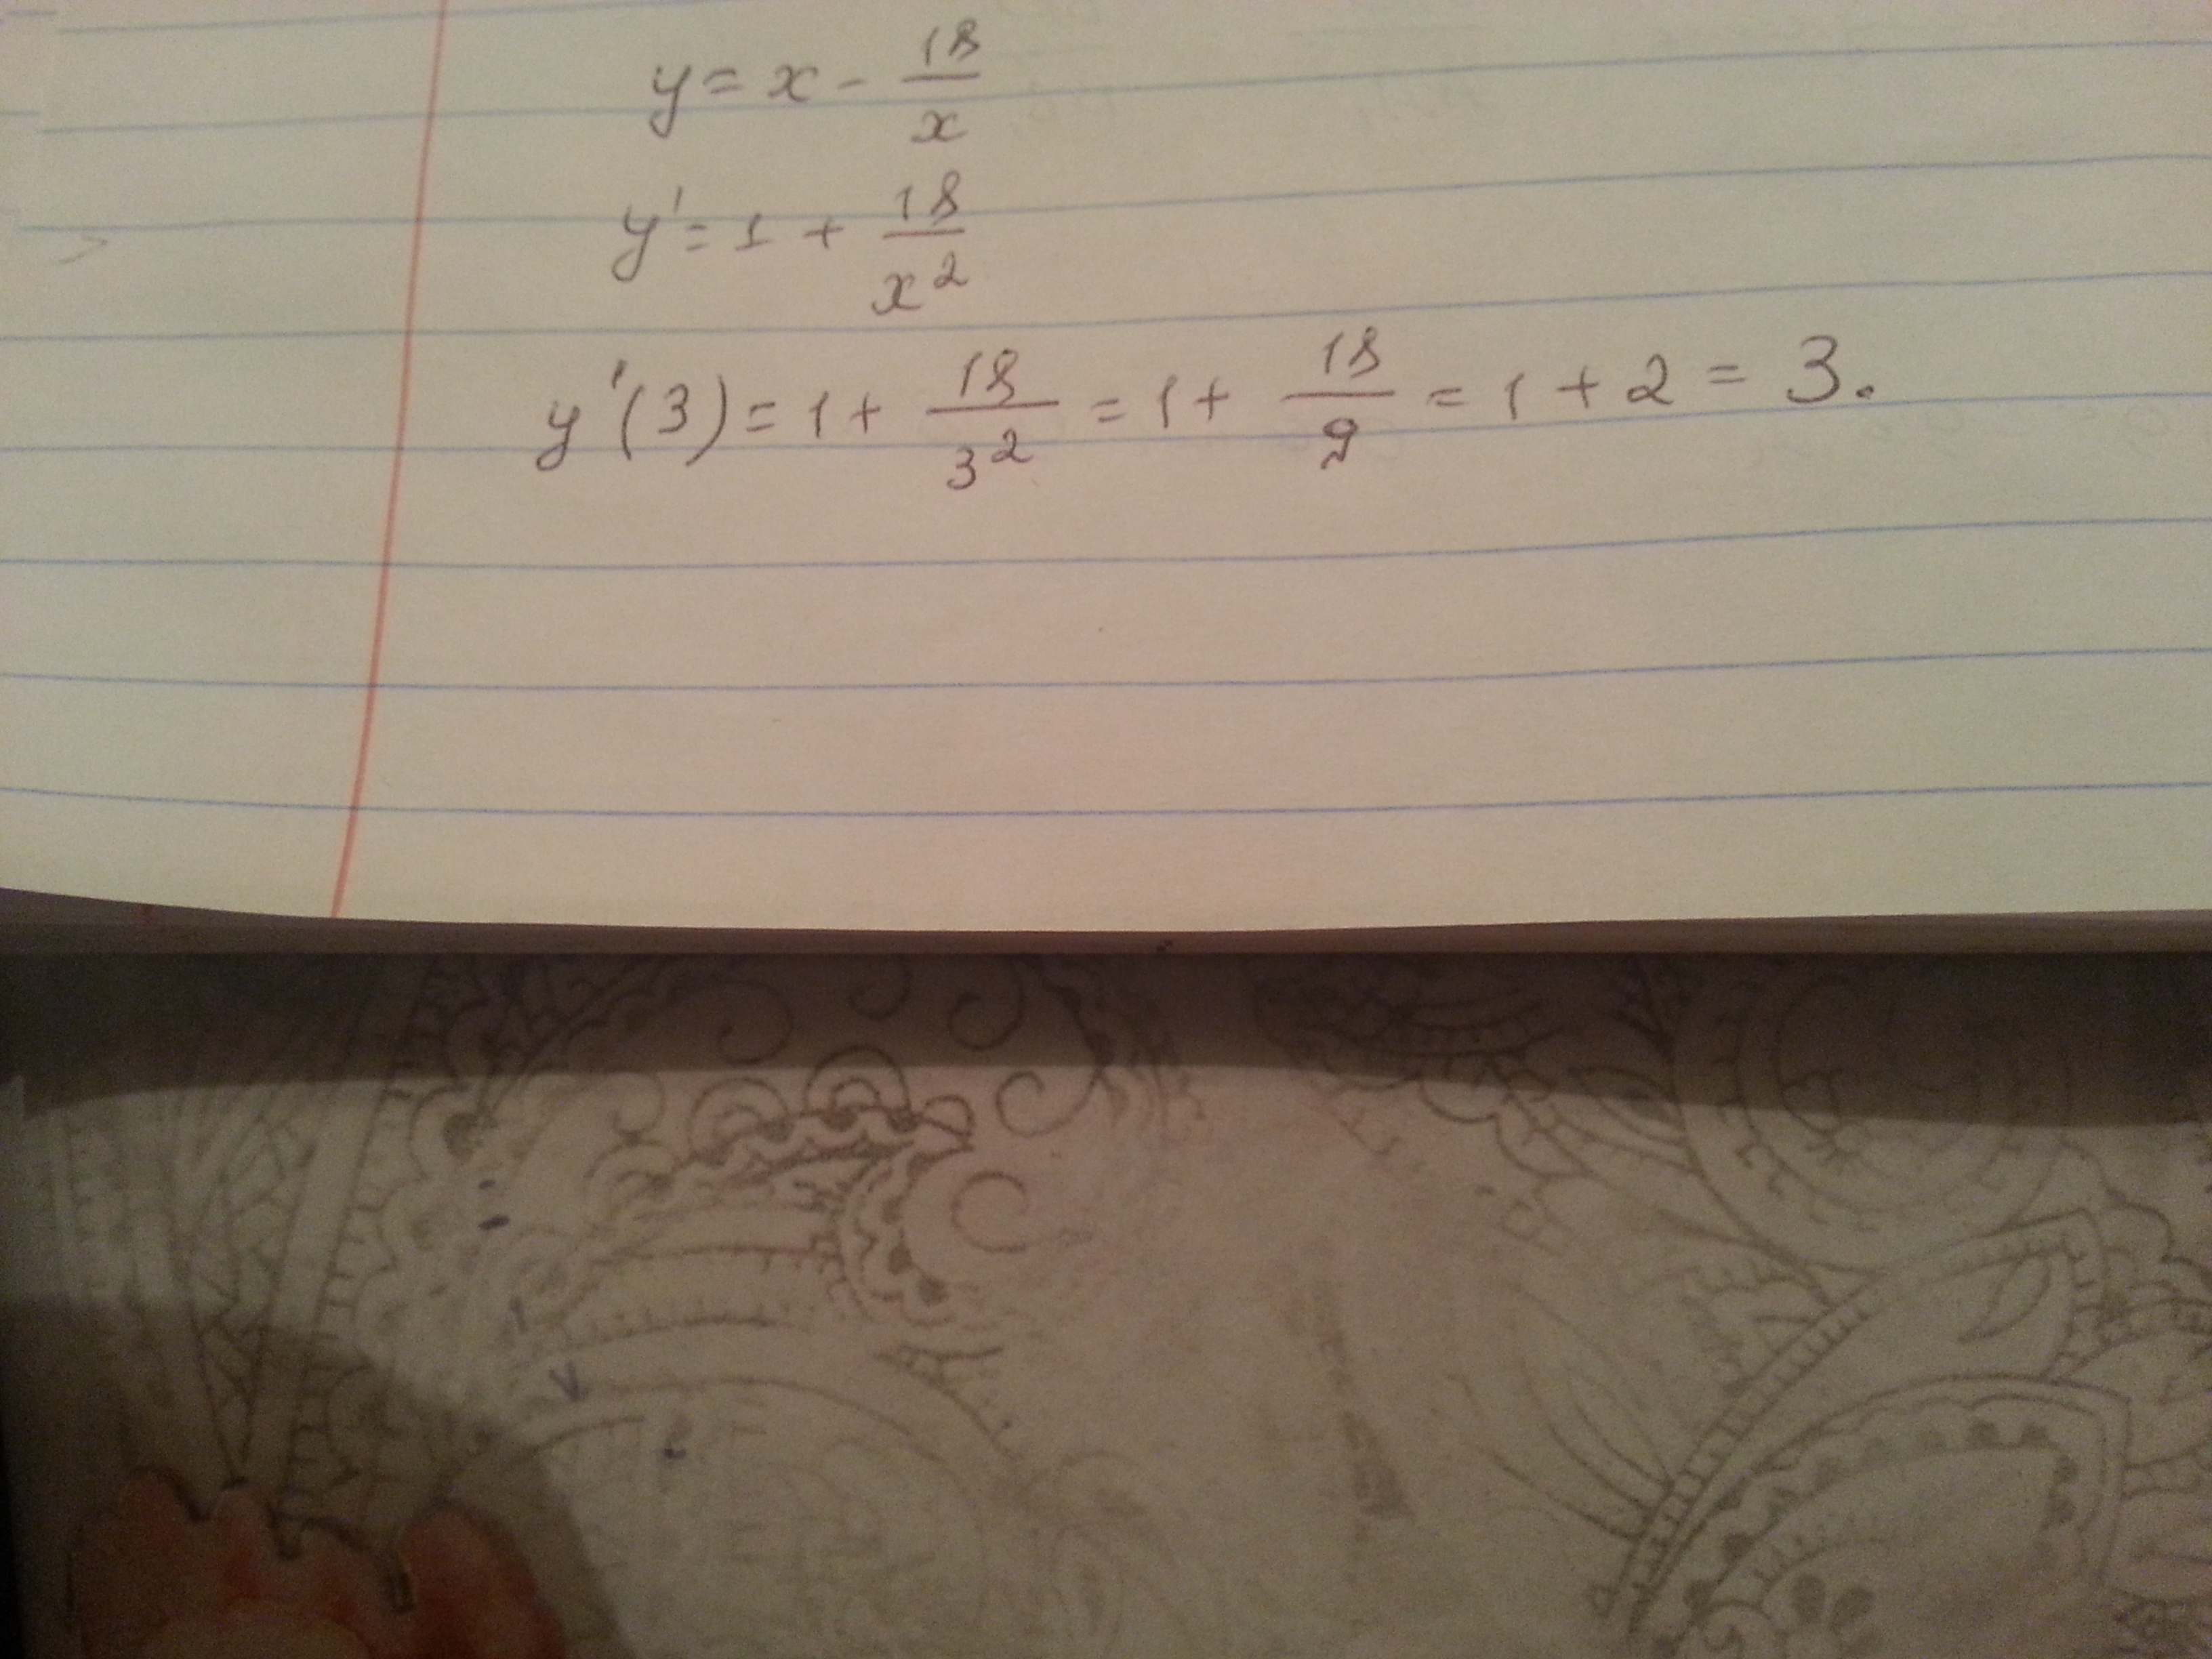 y = x - 18/x
y' = 1 + 18/x²
y'(3) = 1 + 18/3² = 1 + 18/9 = 1 + 2 = 3.